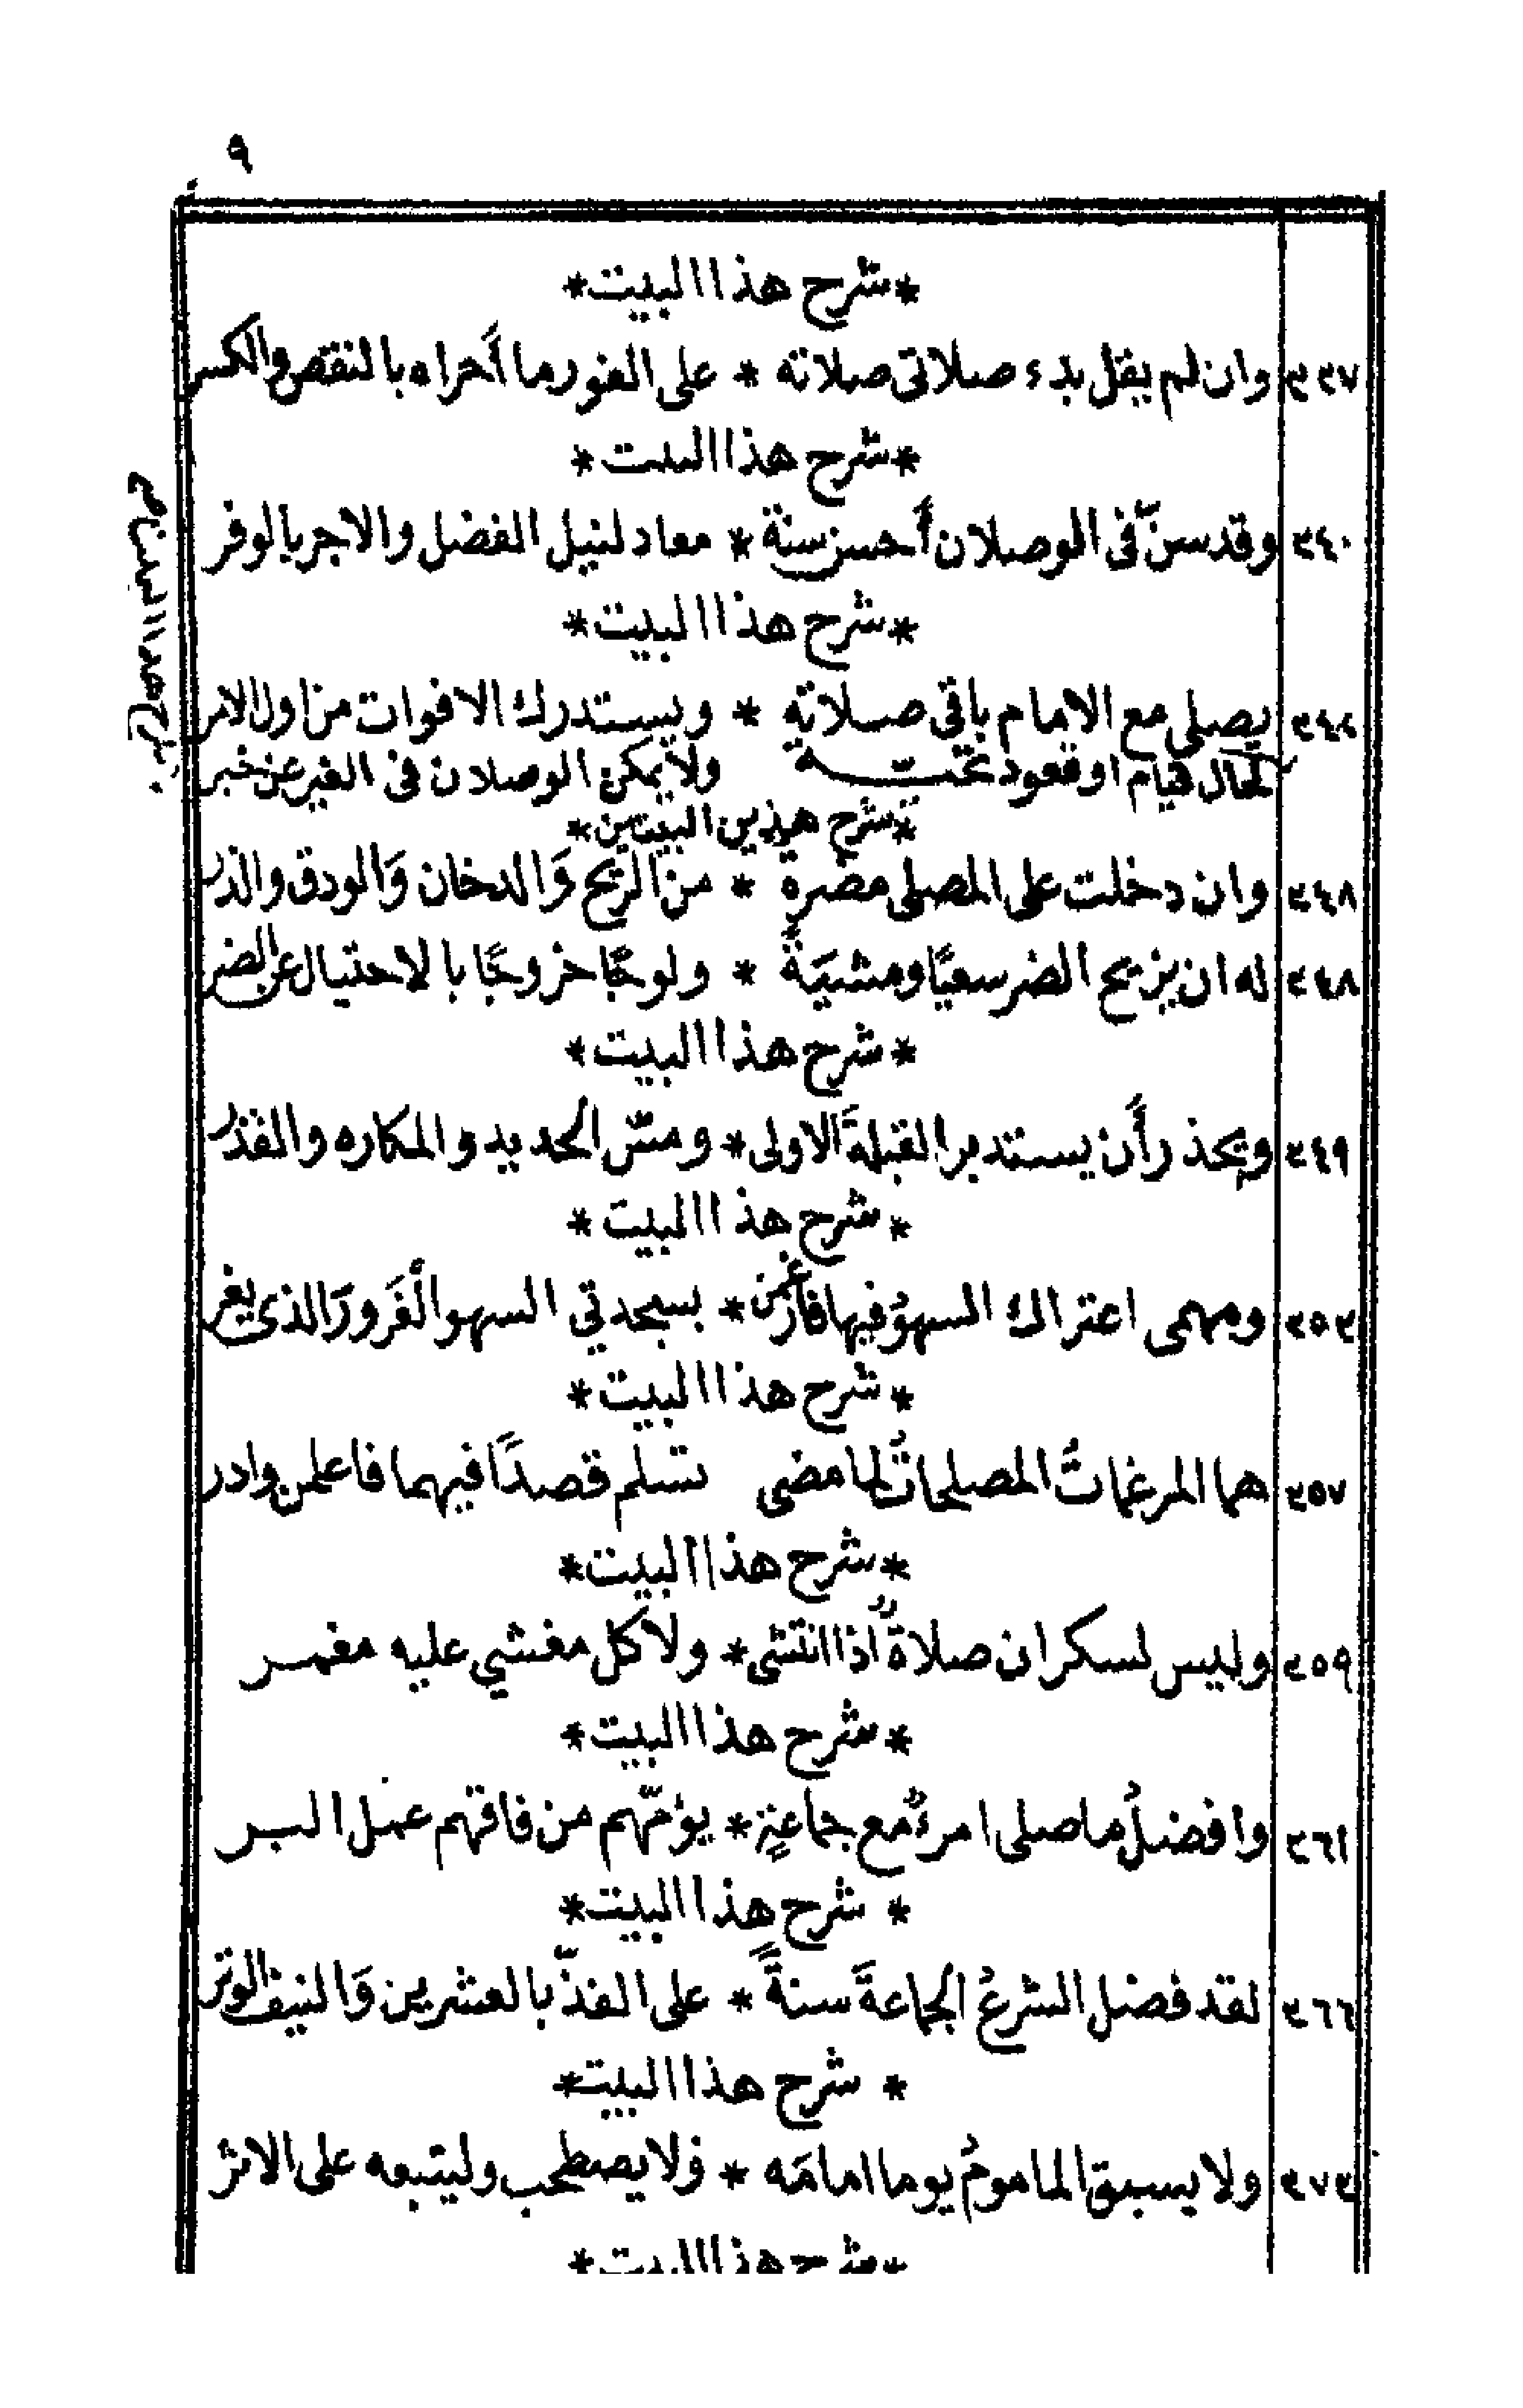 ٩
*شرح هذا البيت*
٣٣٧ وان لم يقل بدء صلاتى صلاته * على الفور ما أحراه بالنقص والكسر
*شرح هذا البيت*
٣٤٠ وقد سنّ فى الوصلان أحسن سنة * معاد لنيل الفضل والاجر بالوفر
*شرح هذا البيت*
٣٤٢ يصلي مع الامام باقى صلاته * ويستدرك الافوات من اول الامر
لحال قيام او قعود تحتّـة ولا يمكن الوصلان فى الغير عن خبر
*شرح هذين البيتين*
٣٤٨ وان دخلت على المصلى مضرة * من الريح وَالدخان وَالودق والذر
٣٤٨ له ان يزيح الضر سعيًا ومشيَةً * ولوجًا خروجًا بالاحتيال عن الضر
*شرح هذا البيت*
٣٤٩ ويحذر أَن يستدبر القبلةَ الاولى * ومسّ الحديد والمكاره والقذر
*شرح هذا البيت*
٣٥٣ ومهمى اعتراك السهوُ فيها فأرغمن * بسجدتي السهو الْغَرورَ الذى يغر
*شرح هذا البيت*
٣٥٧ هما المرغماتُ المصلحاتُ لما مضى تسلم قصدًا فيهما فاعلمن وادر
*شرح هذا البيت*
٣٥٩ وليس لسكران صلاةٌ اذا انتشى * ولا كل مغشي عليه مغمـر
*شرح هذا البيت*
٣٦١ وافضلُ ما صلى امرءٌ مع جماعةٍ * يؤمّهم من فاقهم عمل البـر
* شرح هذا البيت*
٣٦٦ لقد فضل الشرعُ الجماعةَ سنةً * على الفذّ بالعشرين وَالنيف الوتر
* شرح هذا البيت*
٣٧٣ ولا يسبق المامومُ يوما امامَه * وَلا يصطحب وليتبعه على الاثر
*شرح هذا البيت*
شرح هذا البيت